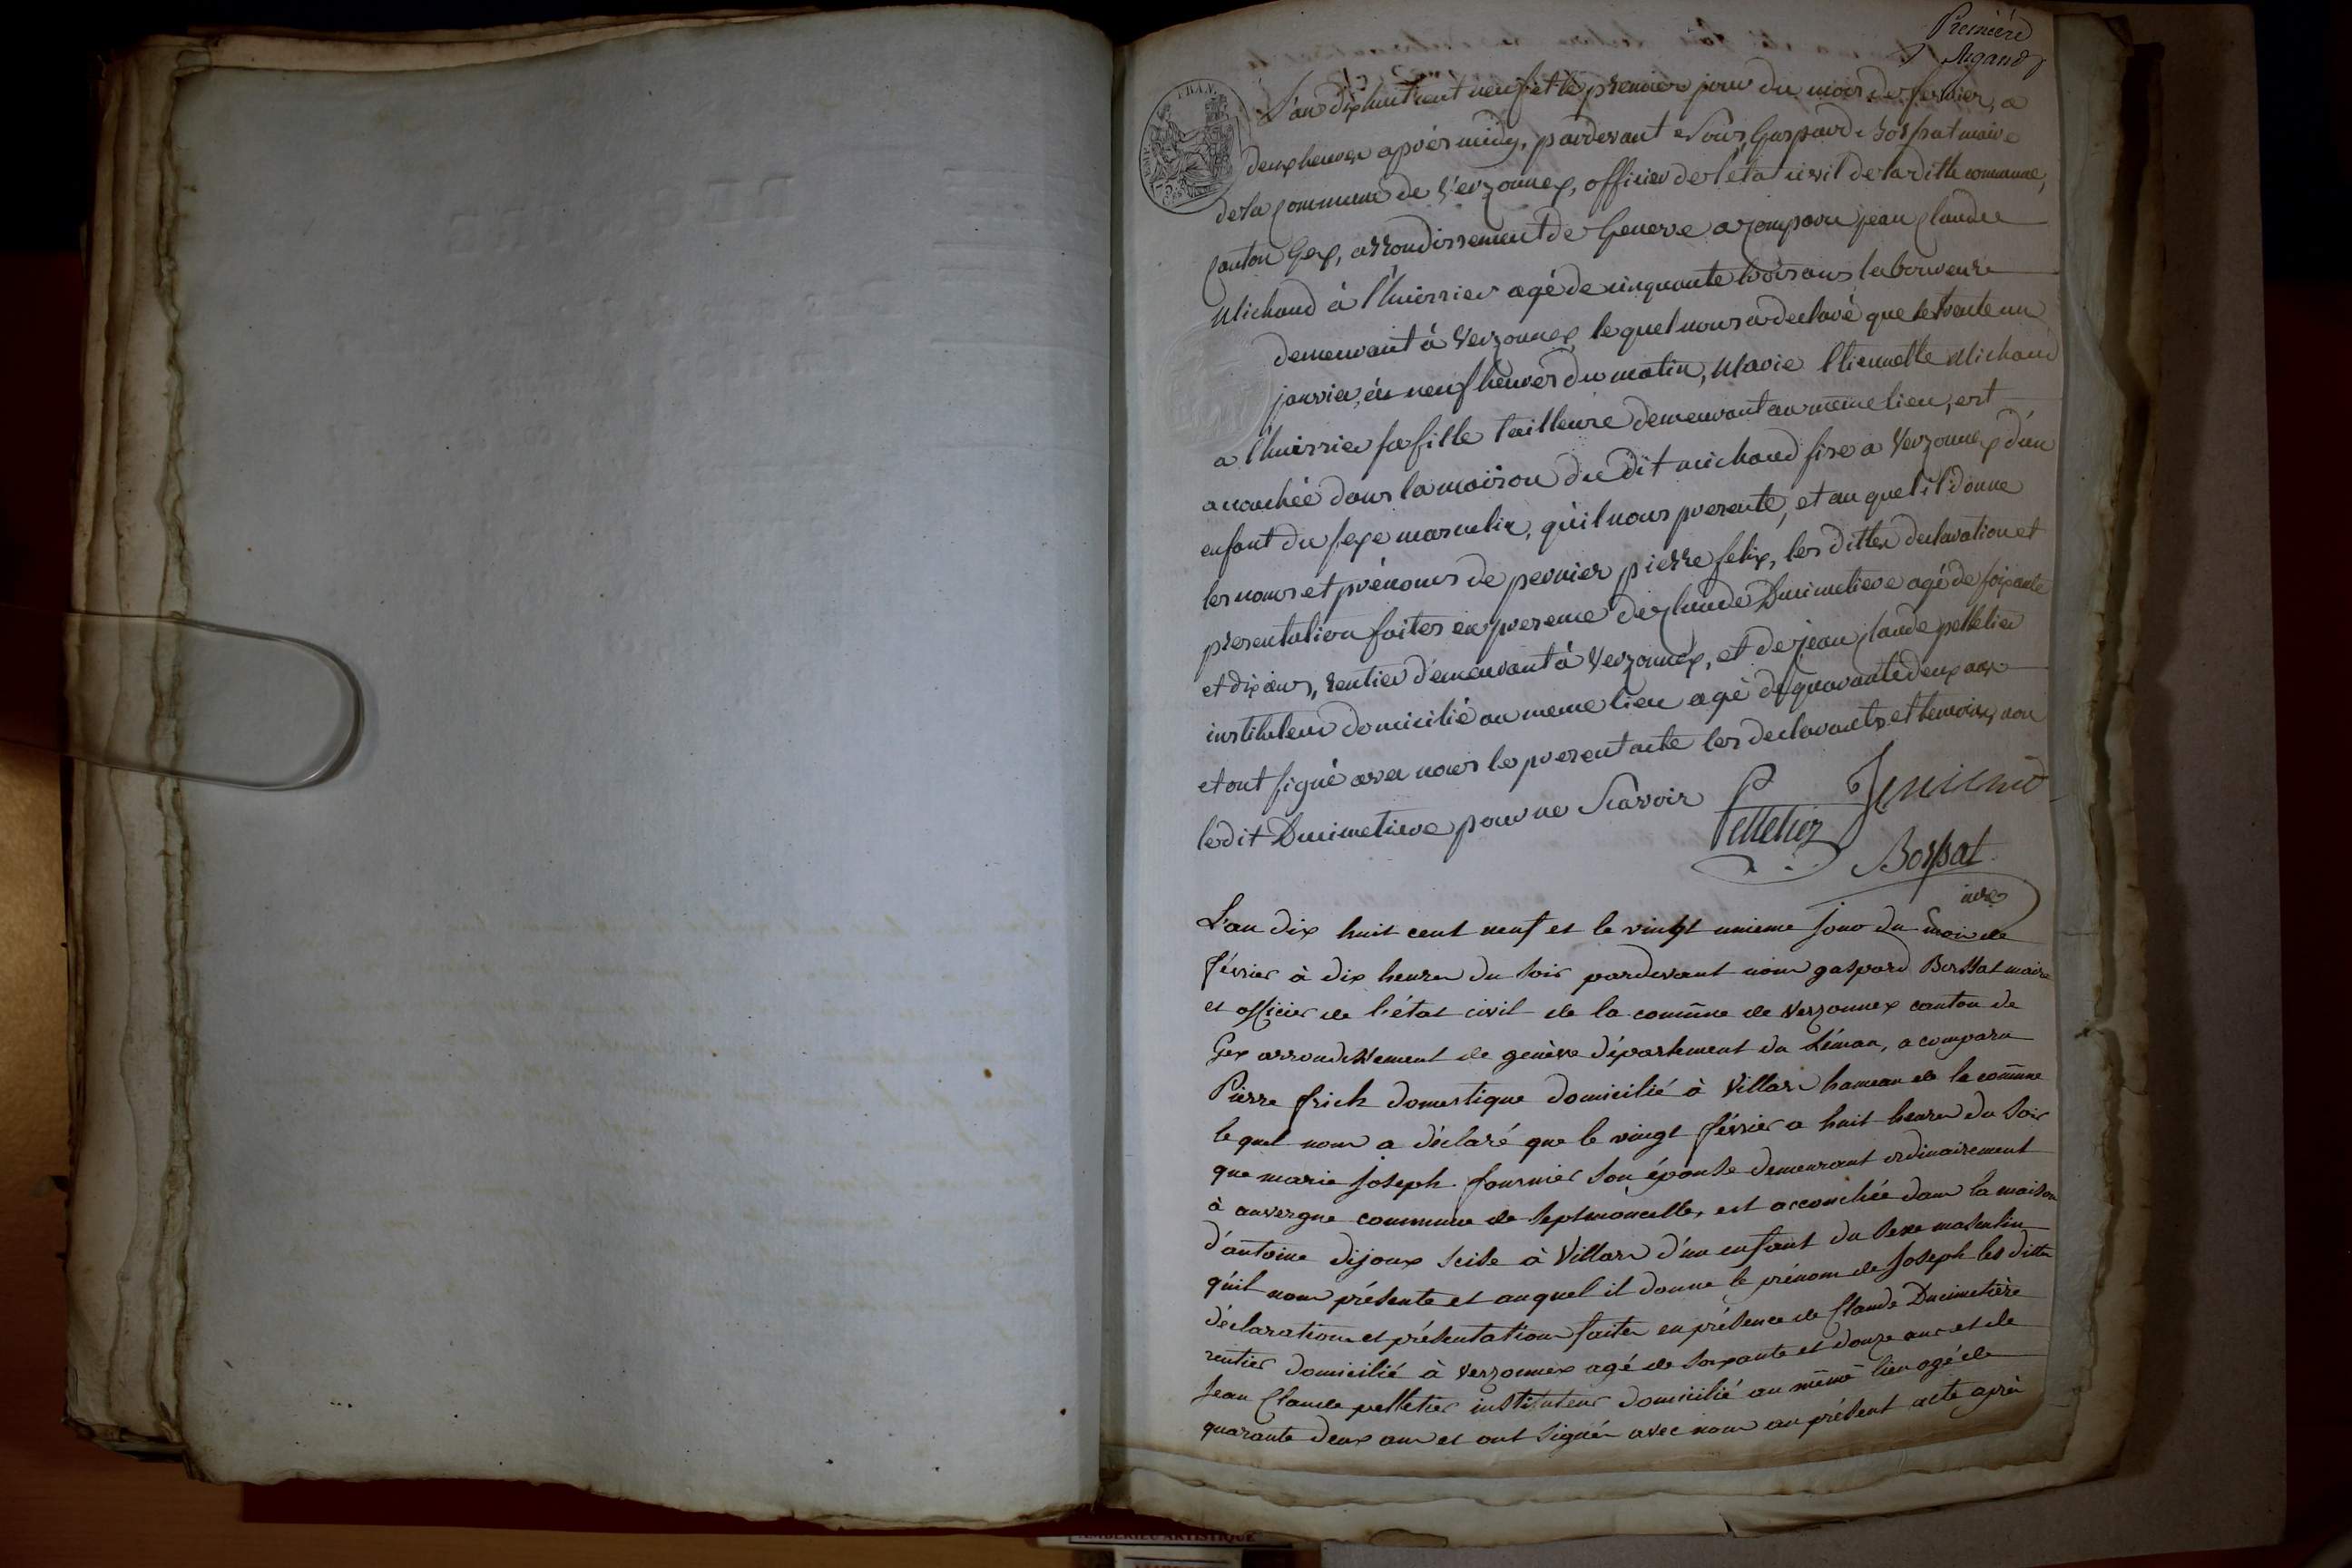 Première
L'an dix huit cent neuf et le premier jour du mois de fevrier, a
deux heures après midy, pardevant Nous, Gaspard Bossat maire
de la Commune de Verzonnex, officier de l'etat civil de la ditte commune,
Canton Gex, arrondissement de Geneve a comparu jean Claude
Michaud à l'huissier agé de cinquante trois ans laboureur
demeurant à Verzonnex, lequel nous a declaré que le trente un
janvier, à neuf heures du matin, Marie Etiennette Michaud
a l'huissier sa fille tailleuse demeurant au même lieu, est
accouchée dans la maison du dit michaud sise a Verzonnex d'un
enfant du sexe masculin, qu'il nous presente, et au quel il donne
les noms et prénoms de pernier pierre felix, les dittes declaration et
presentation faites en presence de Claude Ducimetiere agé de soixante
et dix ans, rentier demeurant à Verzonnex, et de jean Claude pelletier
instituteur domicilié au meme lieu agé de quarante deux ans
et ont signé avec nous le present acte les declarants et temoins, non
le dit Ducimetiere pour ne Scavoir
Pelletier
Bossat
L'an dix huit cent neuf et le vingt unieme jour du mois de
février à dix heures du soir pardevant nous gaspard Bossat maire
et officier de l'état civil de la comūne de Verzonnex canton de
Gex arrondissement de genève département du Léman, a comparu
Pierre frich domestique domicilié à Villars hameau de la comūne
lequel nous a déclaré que le vingt février a huit heures du soir
que marie joseph fournier son épouse demeurant ordinairement
à auvergne commune de septmoncelle, est accouchée dans la maison
d'antoine dijoux scise à Villars d'un enfant du sexe masculin
qu'il nous présente et auquel il donne le prénom de joseph les dittes
déclaration et présentation faites en présence de Claude Ducimetière
rentier domicilié à Verzonnex agé de soixante et douze ans et de
Jean Claude pelletier instituteur domicilié au même lieu agé de
quarante deux ans et ont signés avec nous au présent acte après